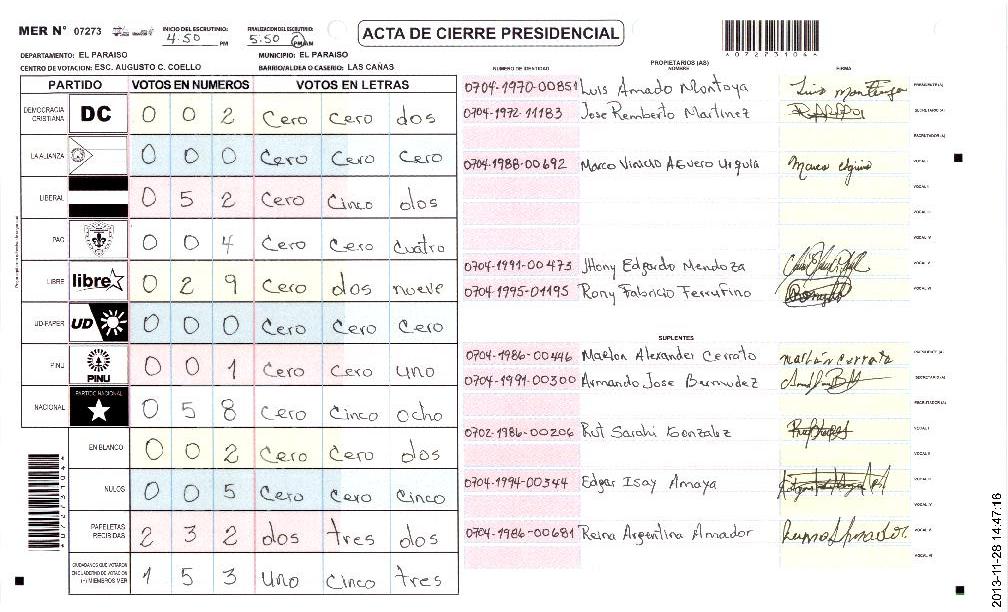 MER N° 07273
INICIO DEL ESCRUTINIO:
4:50 PM
FINALIZACIÓN DEL ESCRUTINIO:
5:50
ACTA DE CIERRE PRESIDENCIAL
*07273104*
DEPARTAMENTO: EL PARAISO
MUNICIPIO: EL PARAISO
CENTRO DE VOTACION: ESC. AUGUSTO C. COELLO
BARRIO/ALDEA O CASERIO: LAS CAÑAS
PARTIDO VOTOS EN NUMEROS VOTOS EN LETRAS
DEMOCRACIA CRISTIANA DC 0 0 2 Cero Cero dos
LA ALIANZA 0 0 0 Cero Cero Cero
LIBERAL 0 5 2 Cero Cinco dos
PAC 0 0 4 Cero Cero Cuatro
LIBRE libre 0 2 9 Cero dos nueve
UD-FAPER UD 0 0 0 Cero Cero Cero
PINU PINU 0 0 1 Cero Cero uno
NACIONAL PARTIDO NACIONAL 0 5 8 Cero Cinco ocho
EN BLANCO 0 0 2 Cero Cero dos
NULOS 0 0 5 Cero Cero Cinco
PAPELETAS RECIBIDAS 2 3 2 dos tres dos
CIUDADANOS QUE VOTARON EN CUADERNO DE VOTACION (+) MIEMBROS MER 1 5 3 Uno Cinco tres
*07273104*
PROPIETARIOS (AS)
NUMERO DE IDENTIDAD NOMBRE FIRMA
0704-1970-00851 Luis Amado Montoya PRESIDENTE (A)
0704-1972-11183 Jose Remberto Martinez SECRETARIO (A)
ESCRUTADOR (A)
0704-1988-00692 Marco Vinicio Aguero Urquia VOCAL I
VOCAL II
VOCAL III
VOCAL IV
0704-1991-00473 Jhony Edgardo Mendoza VOCAL V
0704-1995-01195 Rony Fabricio Ferrufino VOCAL VI
SUPLENTES
0704-1986-00446 Marlon Alexander Cerrato marlon cerrato PRESIDENTE (A)
0704-1991-00300 Armando Jose Bermudez SECRETARIO (A)
ESCRUTADOR (A)
0702-1986-00206 Rut Sarahi Gonzalez VOCAL I
VOCAL II
0704-1994-00344 Edgar Isay Amaya VOCAL III
VOCAL IV
0704-1986-00681 Reina Argentina Amador VOCAL V
VOCAL VI
2013-11-28 14:47:16